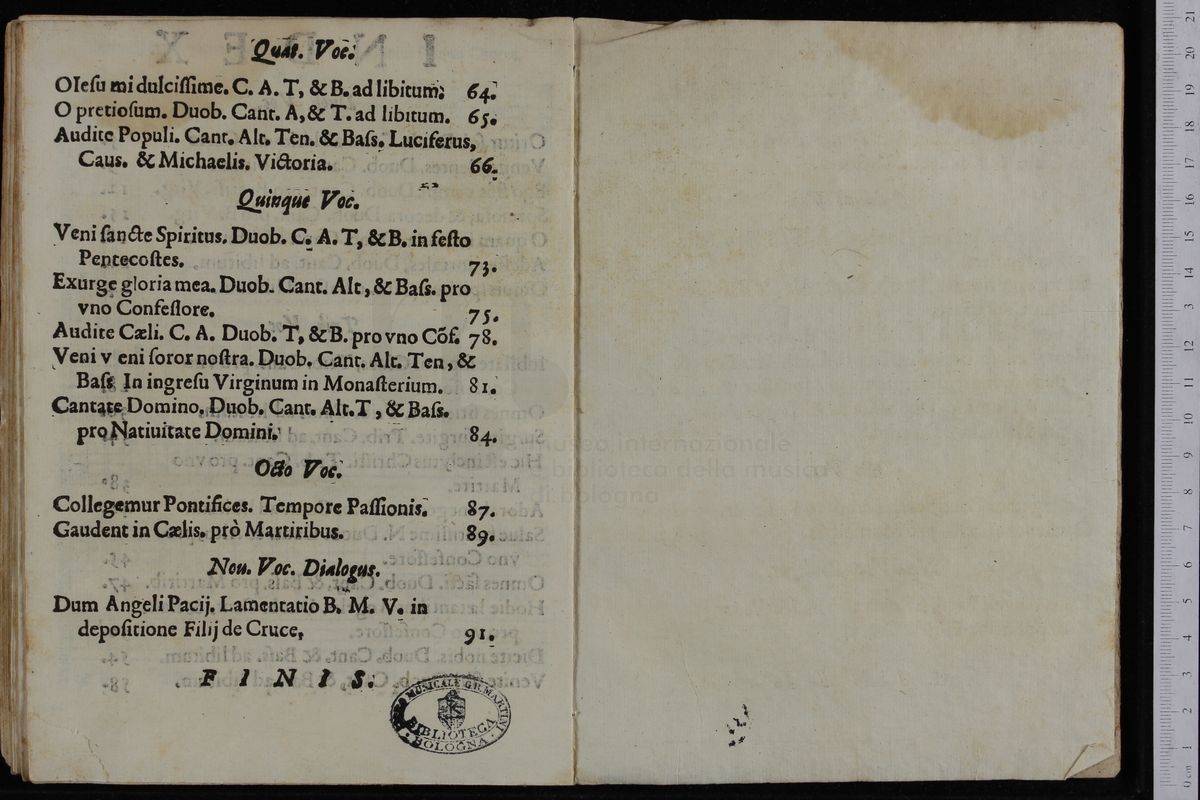 Quat. Voc.
OIeſu mi dulciſſime. C. A. T, & B. ad libitum; 64.
O pretioſum. Duob. Cant. A, & T. ad libitum. 65.
Audite Populi. Cant. Alt. Ten. & Baſs. Luciferus,
Caus. & Michaelis. Victoria. 66.
Quinque Voc.
Veni ſancte Spiritus. Duob. C. A. T, & B. in feſto
Pentecoſtes. 73.
Exurge gloria mea. Duob. Cant. Alt, & Baſs. pro
vno Confeſſore. 75.
Audite Cæli. C. A. Duob. T, & B. pro vno Cõf. 78.
Veni v eni ſoror noſtra. Duob. Cant. Alt. Ten, &
Baſs. In ingreſu Virginum in Monaſterium. 81.
Cantate Domino. Duob. Cant. Alt. T, & Baſs.
pro Natiuitate Domini. 84.
Octo Voc.
Collegemur Pontifices. Tempore Paſſionis. 87.
Gaudent in Cælis. prò Martiribus. 89.
Nou. Voc. Dialogus.
Dum Angeli Pacij. Lamentatio B. M. V. in
depoſitione Filij de Cruce, 91.
F I N I S.
MUSICALE G.B. MARTINI
BIBLIOTECA
BOLOGNA
museo internazionale
biblioteca della musica
di bologna